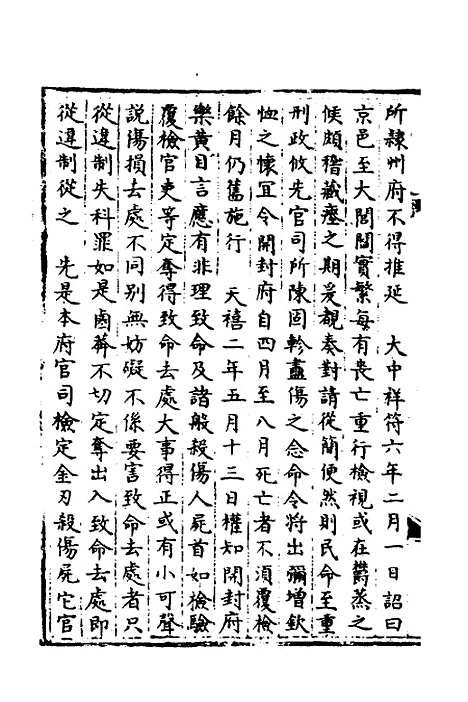 所隸州府不得推延　大中祥符六年二月一日詔曰
京邑至大閭閻實繁每有喪亡重行檢視或在欝蒸之
候頗稽藏瘞之期爰覩奏對請從簡便然則民命至重
刑政攸先官司所陳固軫盡傷之念命令將出彌增欽
恤之懷宜令開封府自四月至八月死亡者不湏覆檢
餘月仍舊施行　天禧二年五月十三日權知開封府
樂黃目言應有非理致命及諸般殺傷人屍首如檢驗
覆檢官吏等定奪得致命去處大事得正或有小可聲
說傷損去處不同別無妨礙不係要害致命去處者只
從違制失科罪如是鹵莽不切定奪出入致命去處即
從違制從之　先是本府官司檢定金刃殺傷屍它官